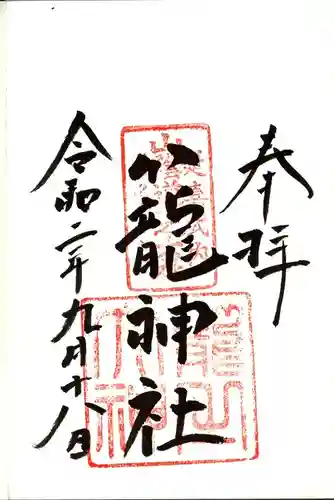 奉拝
八龍神社
令和二年九月十八日